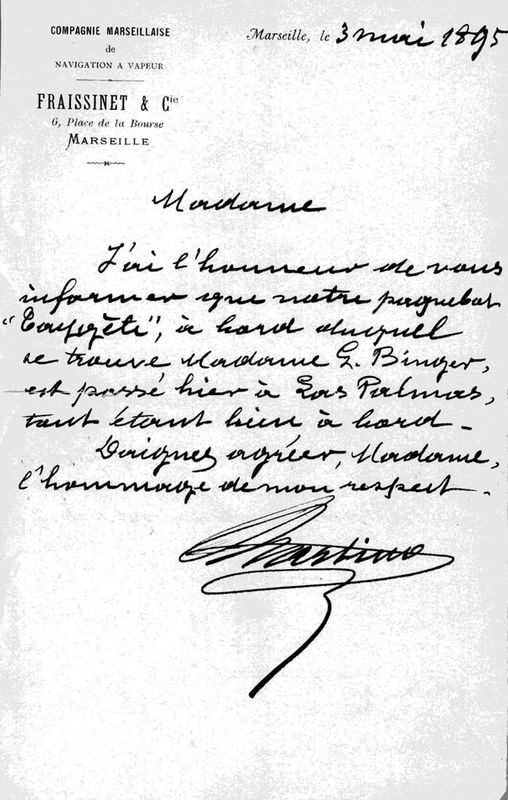 COMPAGNIE MARSEILLAISE
de
NAVIGATION A VAPEUR
FRAISSINET & Cie
6, Place de la Bourse
MARSEILLE
Marseille, le 3 mai 1895
Madame
J'ai l'honneur de vous
informer que notre paquebot
"Taygète", à bord duquel
se trouve Madame G. Binger,
est passé hier à Las Palmas,
tout étant bien à bord.
Daignez agréer, Madame,
l'hommage de mon respect.